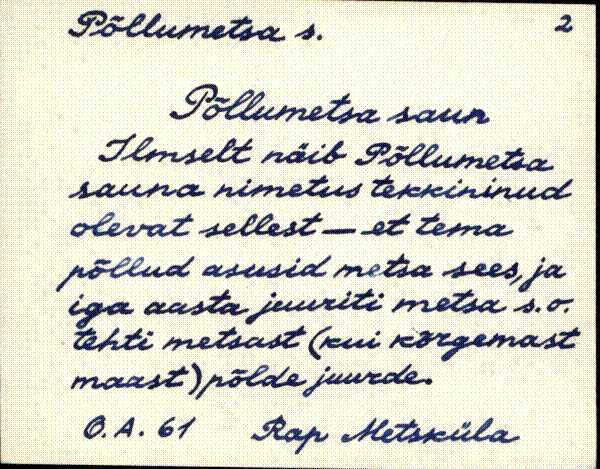 Põllumetsa s. 2
Põllumetsa saun
Ilmselt näib Põllumetsa
sauna nimetus tekkininud
olevat sellest — et tema
põllud asusid metsa sees, ja
iga aasta juuriti metsa s.o.
tehti metsast (kui kõrgemast
maast) põlde juurde.
O.A. 61 Rap Metsküla